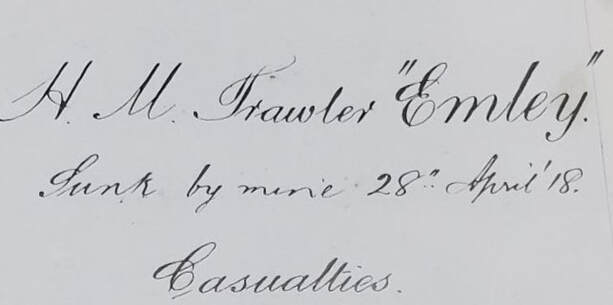 H. M. Trawler "Emley".
Sunk by mine 28" April '18.
Casualties.